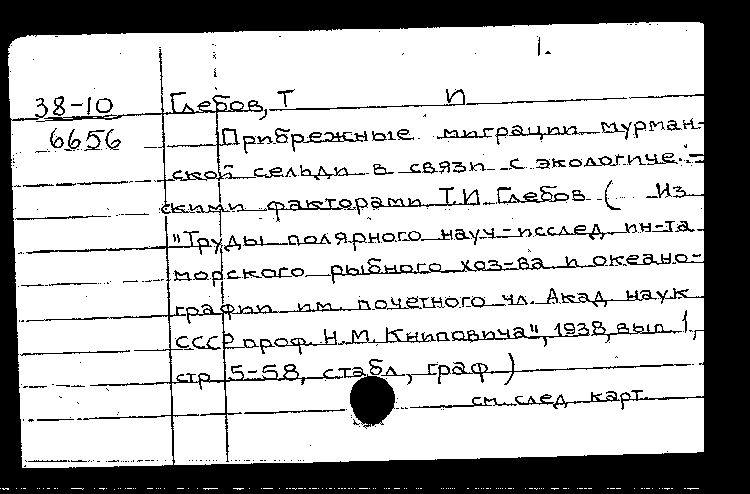 1.
38-10 Глебов, Т И
6656 Прибрежные миграции мурман-
ской сельди в связи с экологиче-
скими факторами Т.И. Глебов ( Из
"Труды полярного науч-исслед. ин-та
морского рыбного хоз-ва и океано-
графии им. почетного чл. Акад наук
СССР проф. Н.М. Книповича", 1938, вып 1,
стр 5-58, с табл, граф )
см. след карт.